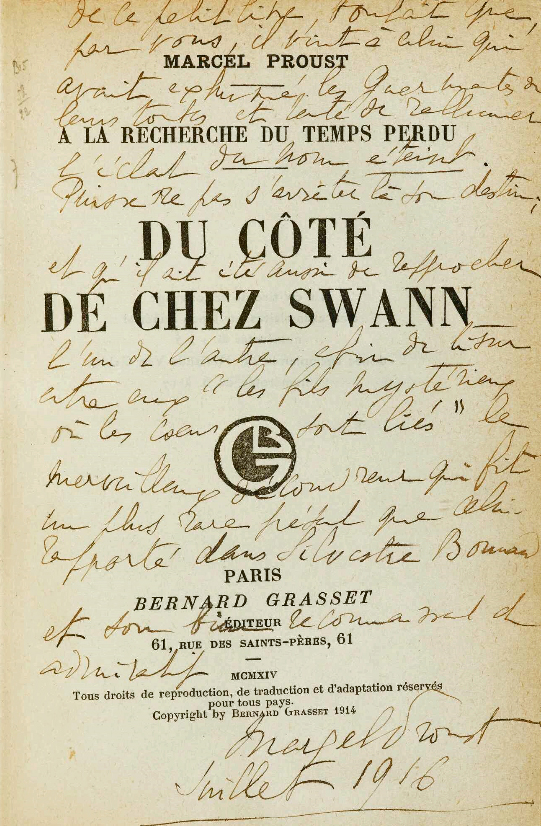 de ce petit livre, voulait que,
par vous, il vint à celui qui
MARCEL PROUST
avait exhumé les Guermantes de
leurs tombes et tenté de rallumer
A LA RECHERCHE DU TEMPS PERDU
l'éclat du nom éteint.
Puisse ne pas s'arrêter là son destin,
DU CÔTÉ
et qu'il ait été aussi de rapprocher
DE CHEZ SWANN
l'un de l'autre, afin de tisser
entre eux "les fils mystérieux
où les coeurs sont liés" le
merveilleux découvreur qui fit
un plus rare présent que celui
rapporté dans Silvestre Bonnard
PARIS
BERNARD GRASSET
et son reconnaissant et
ÉDITEUR
61, RUE DES SAINTS-PÈRES, 61
admiratif
MCMXIV
Tous droits de reproduction, de traduction et d'adaptation réservés
pour tous pays.
Copyright by BERNARD GRASSET 1914
Marcel Proust
Juillet 1916